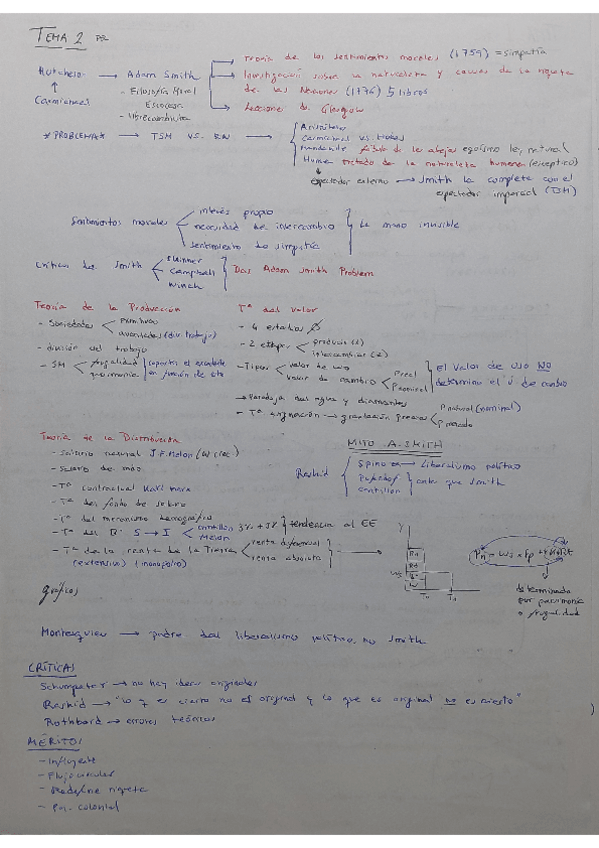 TEMA 2
Teoría de los sentimientos morales (1759) = simpatía
Hutcheson → Adam Smith
Investigación sobre la naturaleza y causas de la riqueza
de las Naciones (1776) 5 libros
Carmichael
- Filosofía Moral
Escocesa
- Librecambista
Lecciones de Glasgow
*PROBLEMA* → TSM VS. RN →
Aristóteles
Carmichael vs. Hobbes
Mandeville fábula de las abejas egoísmo ley natural
Hume tratado de la naturaleza humana (escéptico)
espectador externo → Smith la completa con el
espectador imparcial (TSM)
Sentimientos morales
interés propio
necesidad de intercambio
sentimiento de simpatía
La mano invisible
Críticas de Smith
Skinner
Campbell
Winch
Das Adam Smith Problem
Teoría de la Producción
- Sociedades
primitivas
avanzadas (div. trabajo)
- división del trabajo
- SM
frugalidad
parsimonia
Tª del valor
- 4 estadios
- 2 etapas
producir (1)
intercambiar (2)
- Tipos
valor de uso
valor de cambio
P real
P natural
El valor de uso NO
determina el v. de cambio
- Paradoja del agua y diamantes
- Tª asignación → gravitación precios
P natural (nominal)
P mercado
Teoría de la Distribución
- Salario natural J.F. Melon
- Tª contractual Karl Marx
- Tª del fondo de salario
- Tª del mecanismo demográfico
- Tª del Bº S → I
Cantillon
Melon
tendencia al EE
- Tª de la renta de la Tierra
renta diferencial
renta absoluta
(extensivo) (monopolio)
MITO A. SMITH
Rashid
Spinoza → liberalismo político
Pufendorf
Cantillon
antes que Smith
Y
determinada
por parsimonia
o frugalidad
gráficos
Montesquieu → padre del liberalismo político, no Smith
CRÍTICAS
Schumpeter → no hay ideas originales
Rashid → "lo q es cierto no es original y lo que es original NO es cierto"
Rothbard → errores teóricos
MÉRITOS
- Influyente
- Flujo circular
- Redefine riqueza
- Pn. colonial